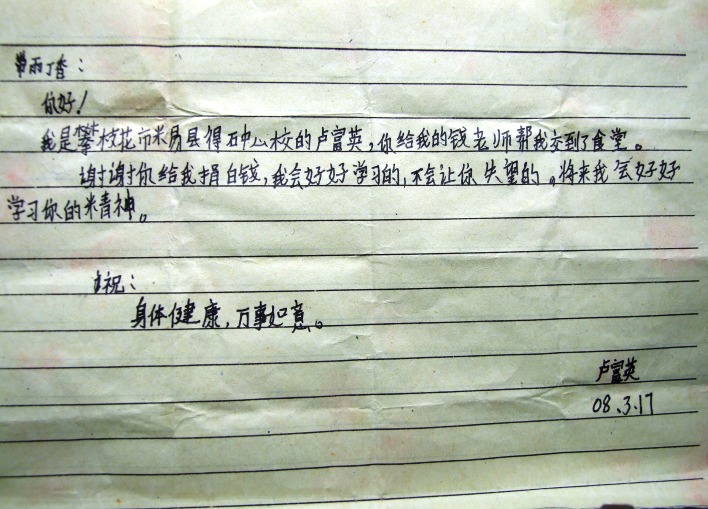 带雨丁香：
你好！
我是攀枝花市米易县得石中心校的卢富英，你给我的钱老师帮我交到了食堂。
谢谢你给我捐白钱，我会好好学习的，不会让你失望的。将来我会好好
学习你的精神。
祝：
身体健康，万事如意。
卢富英
08.3.17